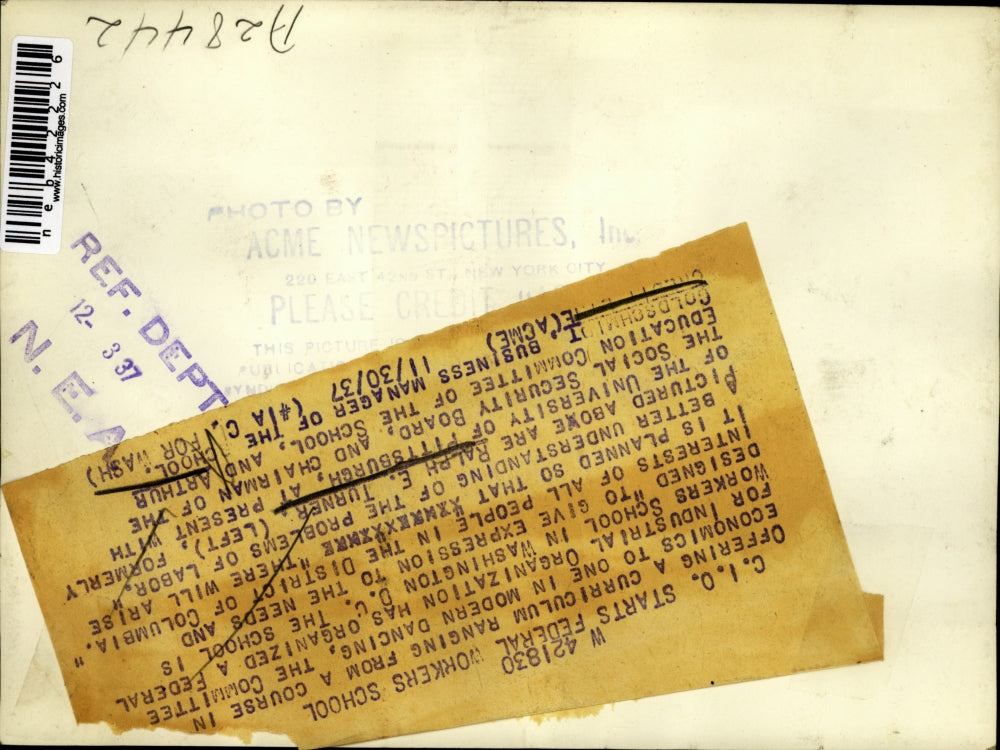 A28442
neb42226
www.historicimages.com
PHOTO BY
ACME NEWSPICTURES, Inc.
220 EAST 42ND ST., NEW YORK CITY
PLEASE CREDIT
THIS PICTURE IS
REF. DEPT.
12- 3 37
N. E. A.
W 421830
C.I.O. STARTS FEDERAL WORKERS SCHOOL
OFFERING A CURRICULUM RANGING FROM A COURSE IN
ECONOMICS TO ONE IN MODERN DANCING, THE COMMITTEE
FOR INDUSTRIAL ORGANIZATION HAS ORGANIZED A FEDERAL
WORKERS SCHOOL IN WASHINGTON D.C. THE SCHOOL IS
DESIGNED "TO GIVE EXPRESSION TO THE NEEDS AND
INTERESTS OF ALL PEOPLE IN THE DISTRICT OF COLUMBIA."
IT IS PLANNED SO THAT "THERE WILL ARISE
A BETTER UNDERSTANDING OF THE PROBLEMS OF LABOR."
PICTURED ABOVE ARE RALPH E. TURNER (LEFT), FORMERLY
OF THE UNIVERSITY OF PITTSBURGH, AT PRESENT WITH
THE SOCIAL SECURITY BOARD, AND CHAIRMAN OF THE
EDUCATION COMMITTEE OF THE SCHOOL, AND ARTHUR
GOLDSCHMIDT, BUSINESS MANAGER OF THE SCHOOL.
CREDIT LINE (ACME) 11/30/37 (#1A FOR WASH)